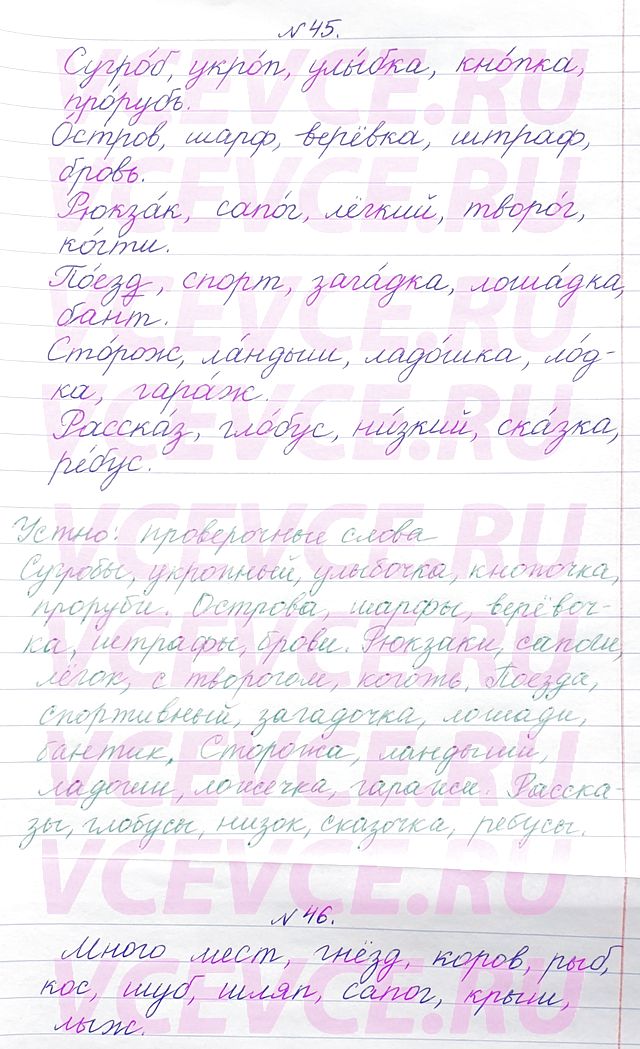 № 45.
Сугро́б, укро́п, улы́бка, кно́пка,
про́рубь.
О́стров, шарф, верёвка, штраф,
бровь.
Рюкза́к, сапо́г, лёгкий, творо́г,
ко́гти.
По́езд, спорт, зага́дка, лоша́дка,
бант.
Сто́рож, ла́ндыш, ладо́шка, ло́д-
ка, гара́ж.
Расска́з, гло́бус, ни́зкий, ска́зка,
ре́бус.
Устно: проверочные слова
Сугробы, укропный, улыбочка, кнопочка,
проруби. Острова, шарфы, верёвоч-
ка, штрафы, брови. Рюкзаки, сапоги,
лёгок, с творогом, коготь. Поезда,
спортивный, загадочка, лошади,
бантик. Сторожа, ландыши,
ладоши, ложечка, гаражи. Расска-
зы, глобусы, низок, сказочка, ребусы.
№ 46.
Много мест, гнёзд, коров, рыб,
кос, шуб, шляп, сапог, крыш,
лыж.
VCEVCE.RU
VCEVCE.RU
VCEVCE.RU
VCEVCE.RU
VCEVCE.RU
VCEVCE.RU
VCEVCE.RU
VCEVCE.RU
VCEVCE.RU